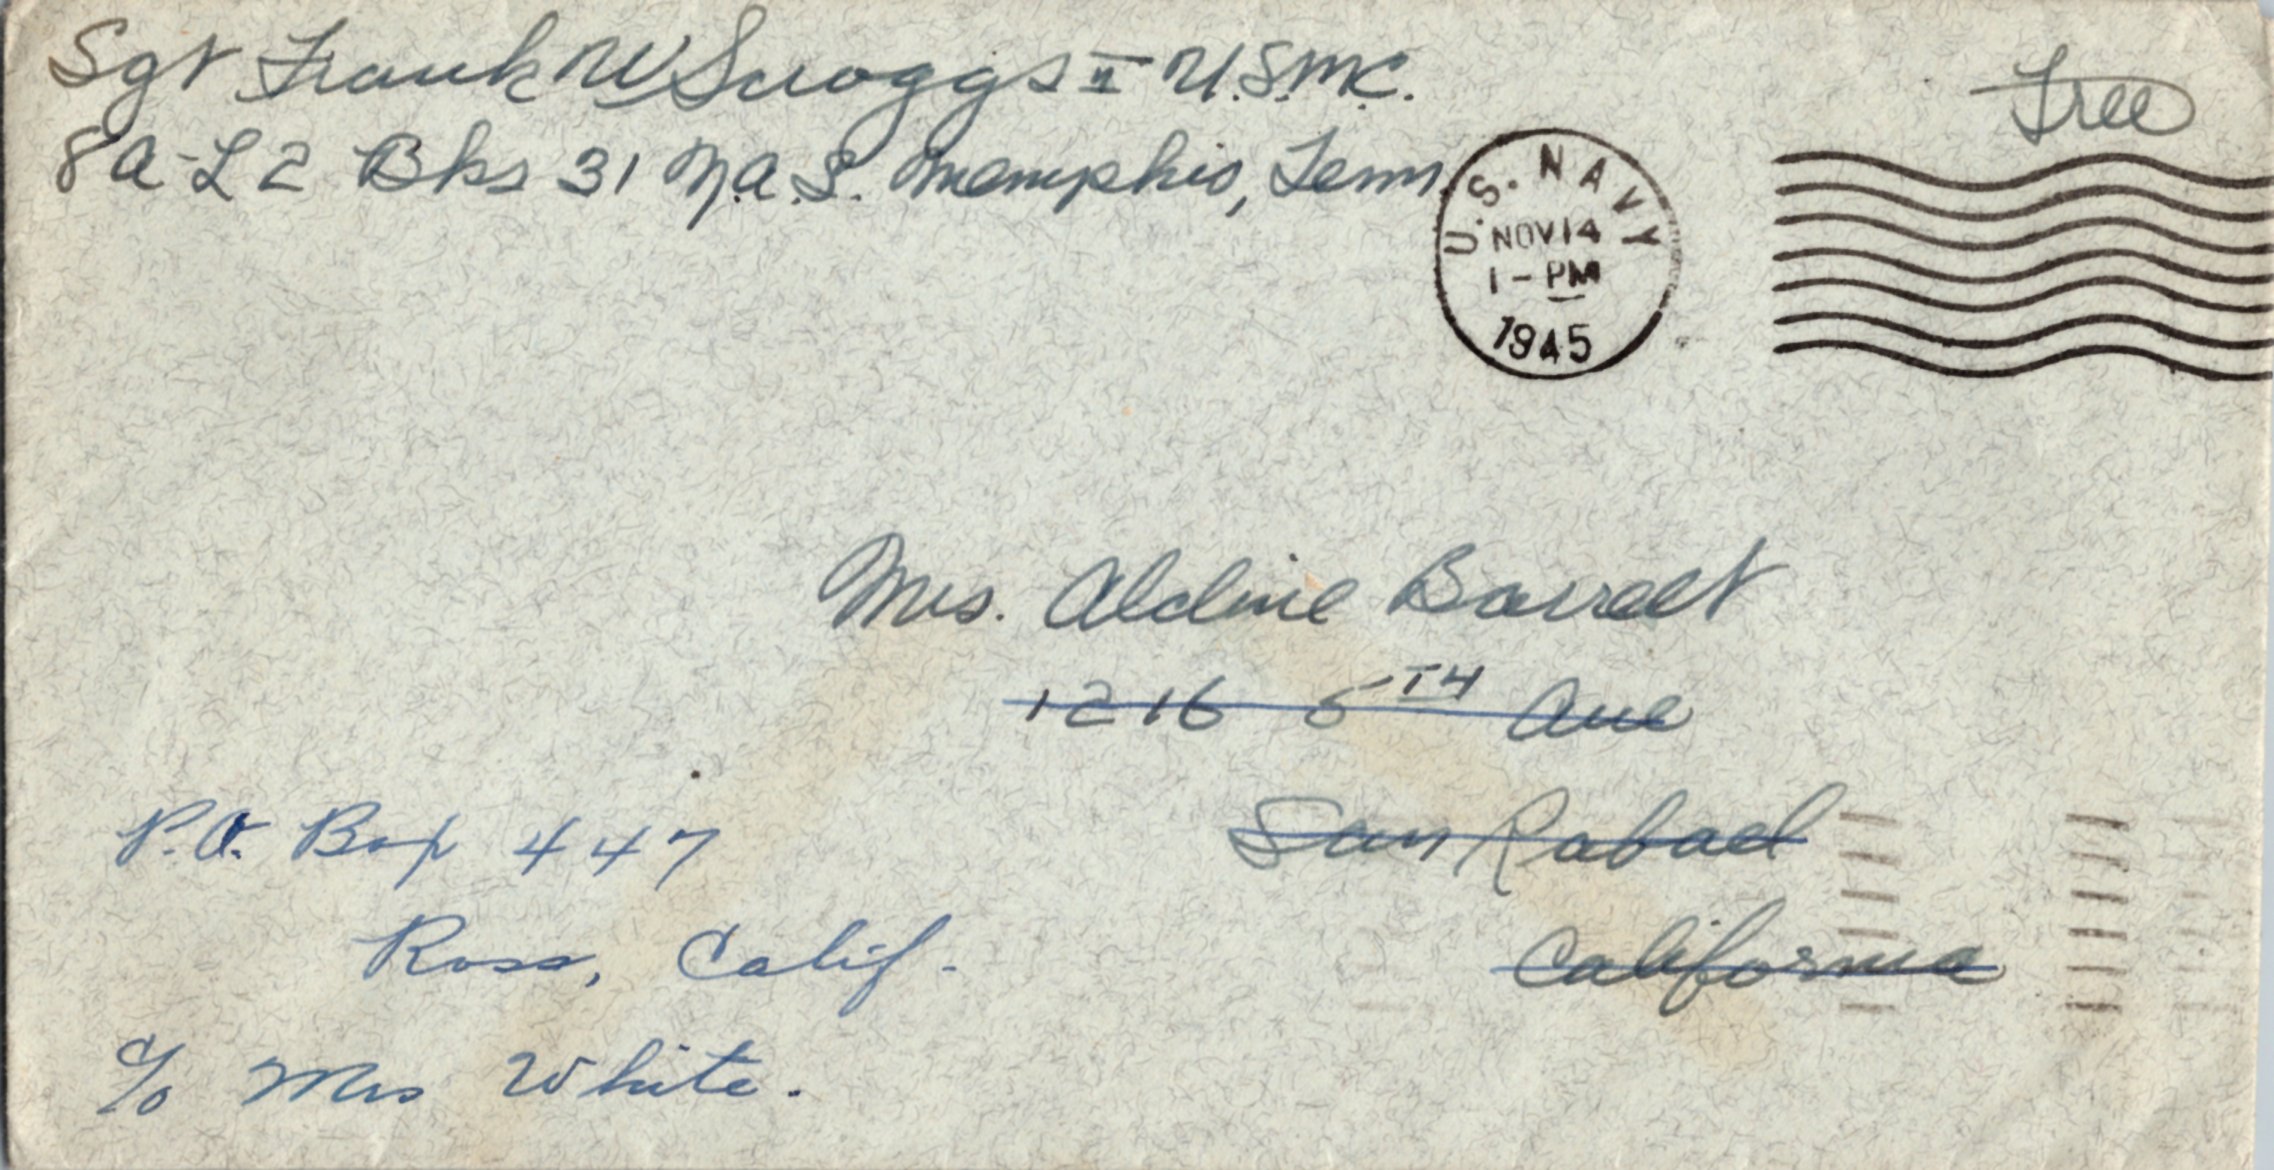 Sgt Frank W Scroggs II U.S.M.C.
8A-L2 Bks 31 N.A.S. Memphis, Tenn
Free
U.S. NAVY
NOV 14
1-PM
1945
Mrs. Aldine Barrett
1216 5TH Ave
San Rafael
California
P.O. Box 447
Ross, Calif.
c/o Mrs White.